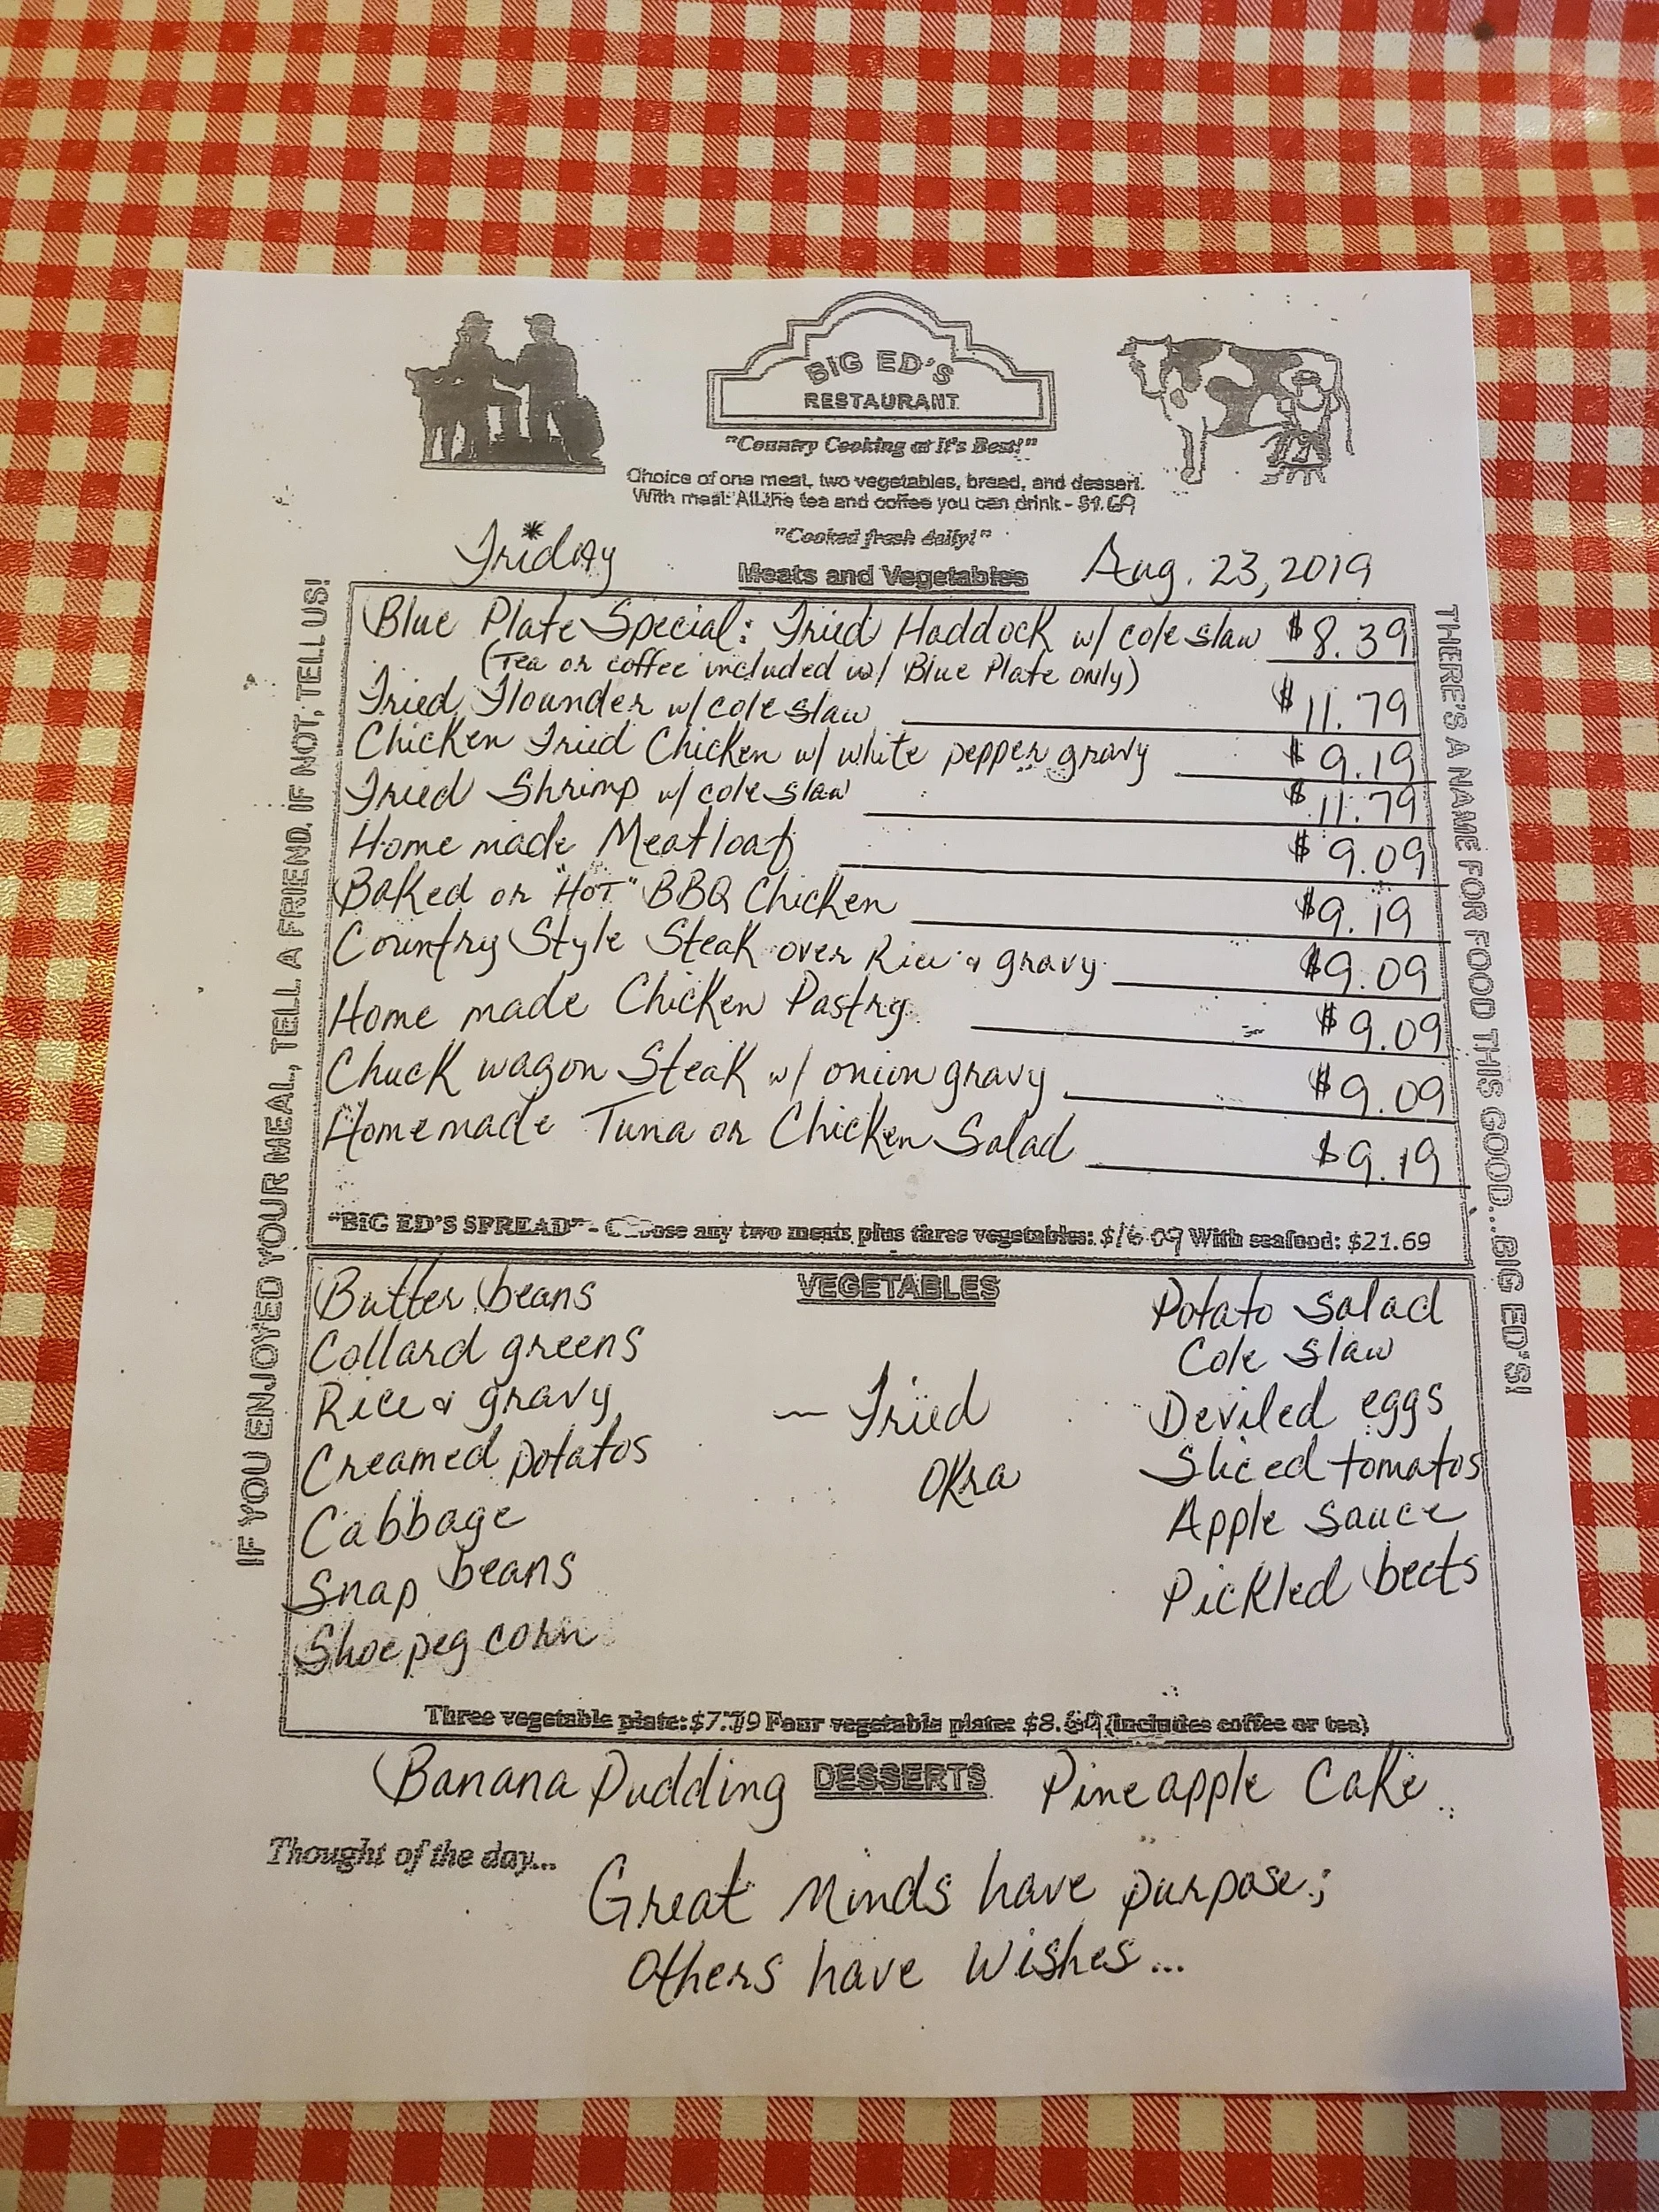 BIG ED'S
RESTAURANT
"Country Cooking at It's Best!"
Choice of one meat, two vegetables, bread, and dessert.
With meal: All the tea and coffee you can drink - $1.69
"Cooked fresh daily!"
Friday
Meats and Vegetables
Aug. 23, 2019
Blue Plate Special: Fried Haddock w/ cole slaw $8.39
(Tea or coffee included w/ Blue Plate only)
Fried Flounder w/ cole slaw $11.79
Chicken Fried Chicken w/ white pepper gravy $9.19
Fried Shrimp w/ cole slaw $11.79
Home made Meatloaf $9.09
Baked or "HOT" BBQ Chicken $9.19
Country Style Steak over Rice & gravy $9.09
Home made Chicken Pastry $9.09
Chuck wagon Steak w/ onion gravy $9.09
Homemade Tuna or Chicken Salad $9.19
"BIG ED'S SPREAD" - Choose any two meats plus three vegetables: $16.09 With seafood: $21.69
VEGETABLES
Butter beans
Collard greens
Rice & gravy
Creamed potatos
Cabbage
Snap beans
Shoepeg corn
Fried
Okra
Potato salad
Cole slaw
Deviled eggs
Sliced tomatos
Apple sauce
Pickled beets
Three vegetable plate: $7.79 Four vegetable plate: (includes coffee or tea)
Banana Pudding DESSERTS Pineapple Cake
Thought of the day...
Great Minds have purpose;
Others have Wishes...
IF YOU ENJOYED YOUR MEAL, TELL A FRIEND. IF NOT, TELL US!
THERE'S A NAME FOR FOOD THIS GOOD...BIG ED'S!